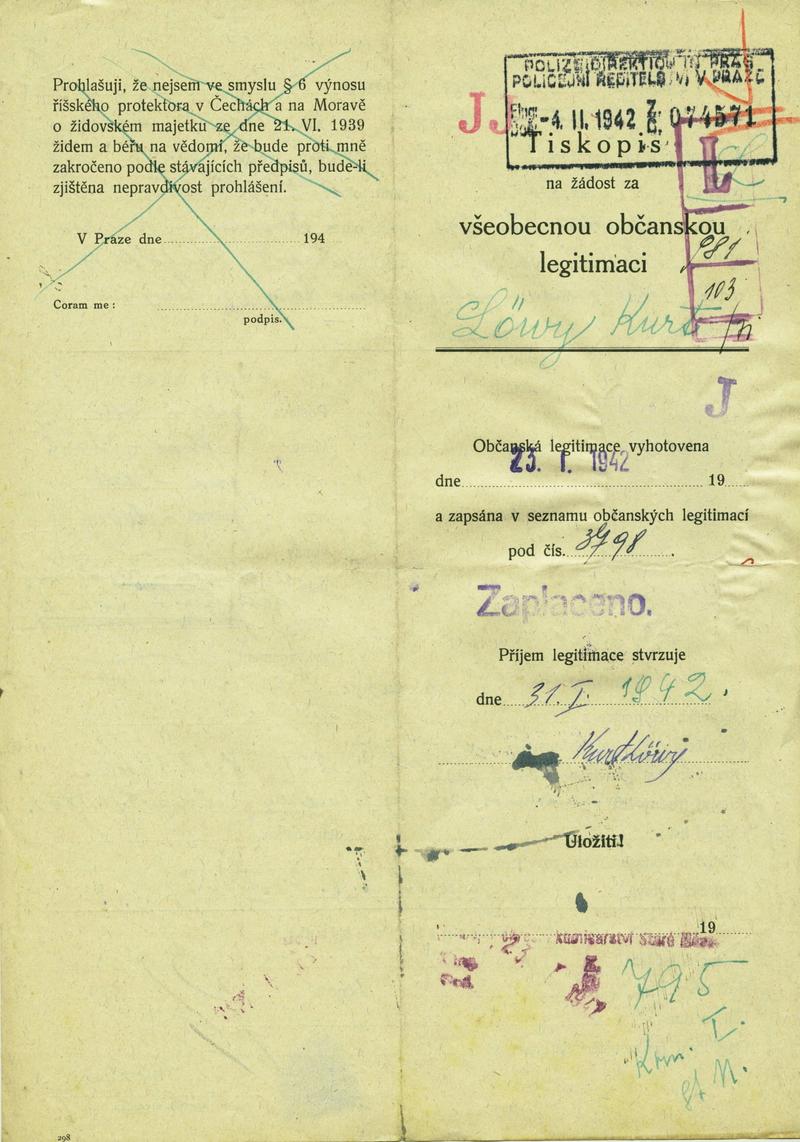 Prohlašuji, že nejsem ve smyslu § 6 výnosu
říšského protektora v Čechách a na Moravě
o židovském majetku ze dne 21. VI. 1939
židem a béřu na vědomí, že bude proti mně
zakročeno podle stávajících předpisů, bude-li
zjištěna nepravdivost prohlášení.
V Praze dne 194
Coram me :
podpis.
298
POLIZEIDIREKTION IN PRAG
POLICEJNÍ ŘEDITELSTVÍ V PRAZE
J J
-4. II. 1942 074571
Tiskopis
L
na žádost za
všeobecnou občanskou
981
legitimaci
103
Löwy Kurt
J
Občanská legitimace vyhotovena
23. I. 1942
dne 19
a zapsána v seznamu občanských legitimací
pod čís. 3798 .
Zaplaceno.
Příjem legitimace stvrzuje
dne 31. I. 1942.
Kurt Löwy
Uložiti!
19
795
I.
Kom.
St M.